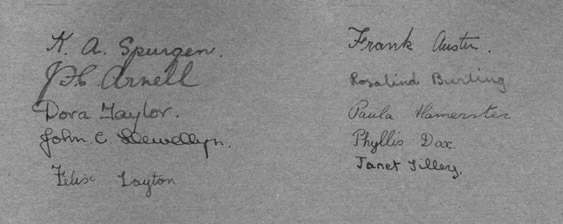 K. A. Spurgen.
Arnell
Dora Taylor.
John C Llewellyn.
Felix Layton
Frank Austin.
Rosalind Burling
Paula Hamerster
Phyllis Dax.
Janet Tilley.